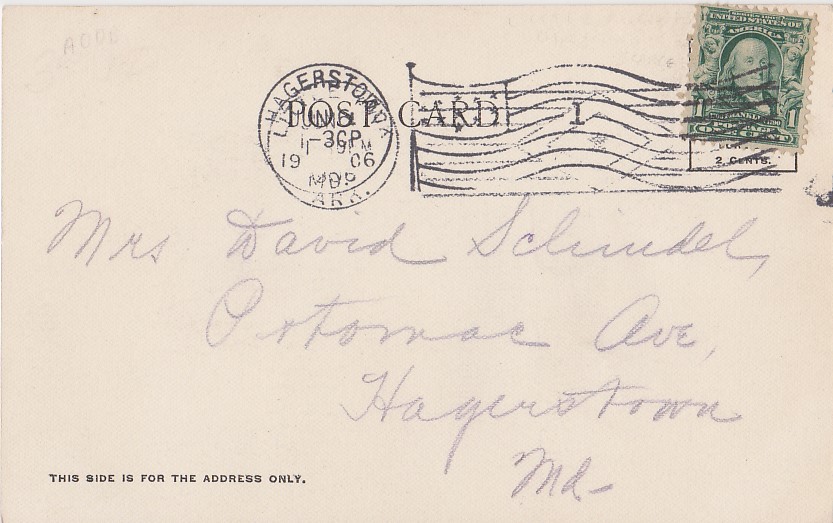 SERIES 1902
UNITED STATES OF AMERICA
FRANKLIN
POSTAGE
ONE CENT
1
HAGERSTOWN
POST CARD
1
JUN
3 30 P
19 06
MD.
ARK.
2 CENTS.
Mrs David Schindel,
Potomac Ave,
Hagerstown
Md-
THIS SIDE IS FOR THE ADDRESS ONLY.